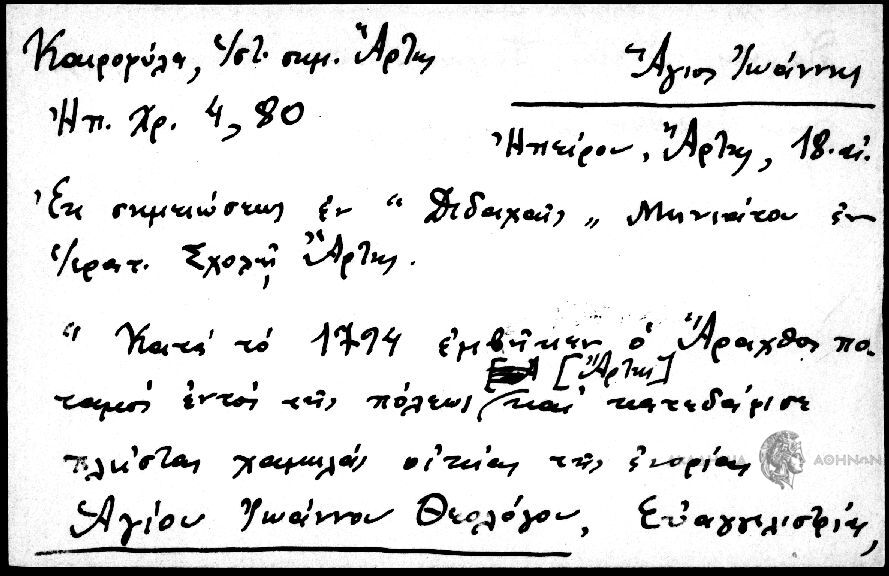 Καιροφύλα, ἱστ. σημ. Ἄρτης
Ἅγιος Ἰωάννης
Ἠπ. Χρ. 4, 80
Ἠπείρου, Ἄρτης, 18. αἰ.
Ἐκ σημειώσεως ἐν “ Διδαχαῖς „ Μηνιάτου ἐν
Ἱερατ. Σχολῇ Ἄρτης.
“ Κατὰ τὸ 1794 ἐμβῆκεν ὁ Ἄραχθος πο-
[Ἄρτης]
ταμὸς ἐντὸς τῆς πόλεως καὶ κατεδάφισε
πλείστας χαμηλὰς οἰκίας τῆς ἐνορίας
ΑΘΗΝΩΝ
Ἁγίου Ἰωάννου Θεολόγου, Εὐαγγελιστρίας,